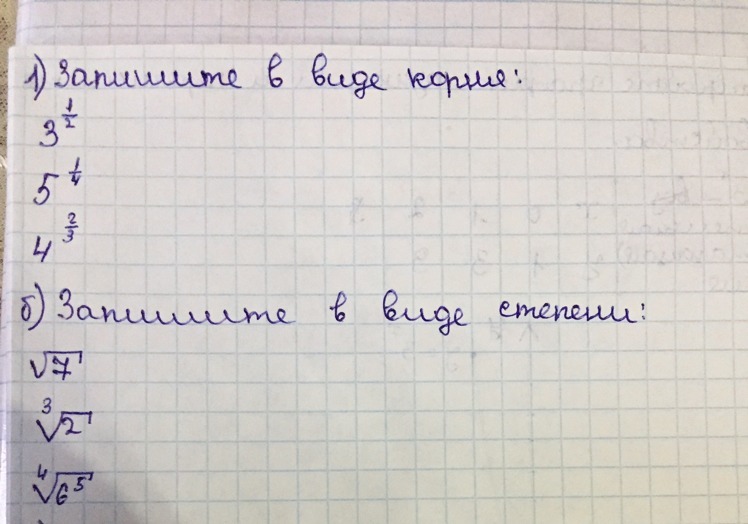 1) Запишите в виде корня:
3^{\frac{1}{2}}
5^{\frac{1}{4}}
4^{\frac{2}{3}}
б) Запишите в виде степени:
\sqrt{7}
\sqrt[3]{2}
\sqrt[4]{6^5}